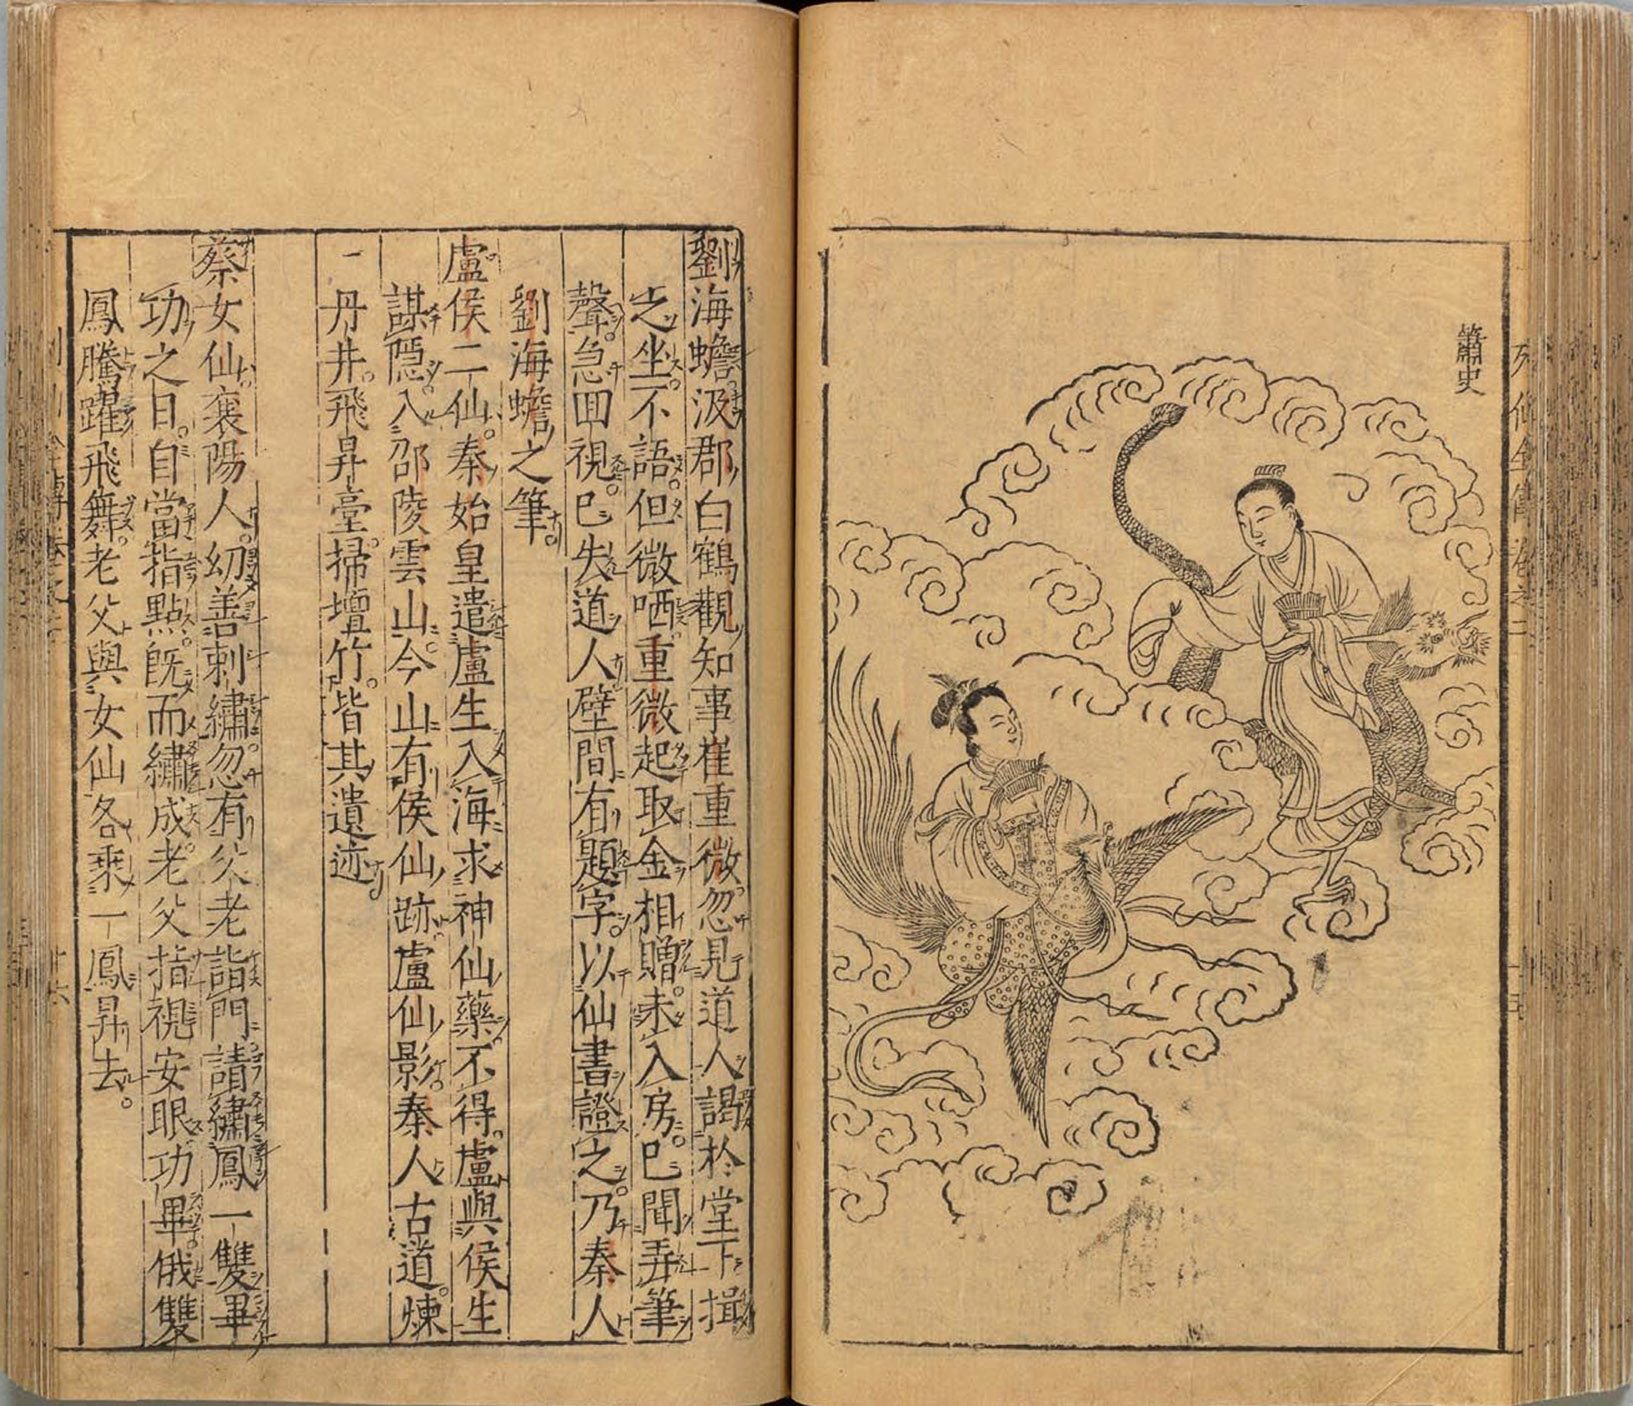 簫史
劉海蟾汲郡白鶴觀知事崔重微忽見道人謁於堂下揖
之坐不語但微哂重微起取金相贈未入房已聞弄筆
聲急回視已失道人壁間有題字以仙書證之乃秦人
劉海蟾之筆
盧侯二仙秦始皇遣盧生入海求神仙藥不得盧與侯生
謀隱入邵陵雲山今山有侯仙跡盧仙影秦人古道煉
丹井飛昇臺掃壇竹皆其遺迹
蔡女仙襄陽人幼善刺繡忽有父老詣門請繡鳳一雙畢
功之日自當指點既而繡成老父指視安眼功畢俄雙
鳳騰躍飛舞老父與女仙各乘一鳳昇去